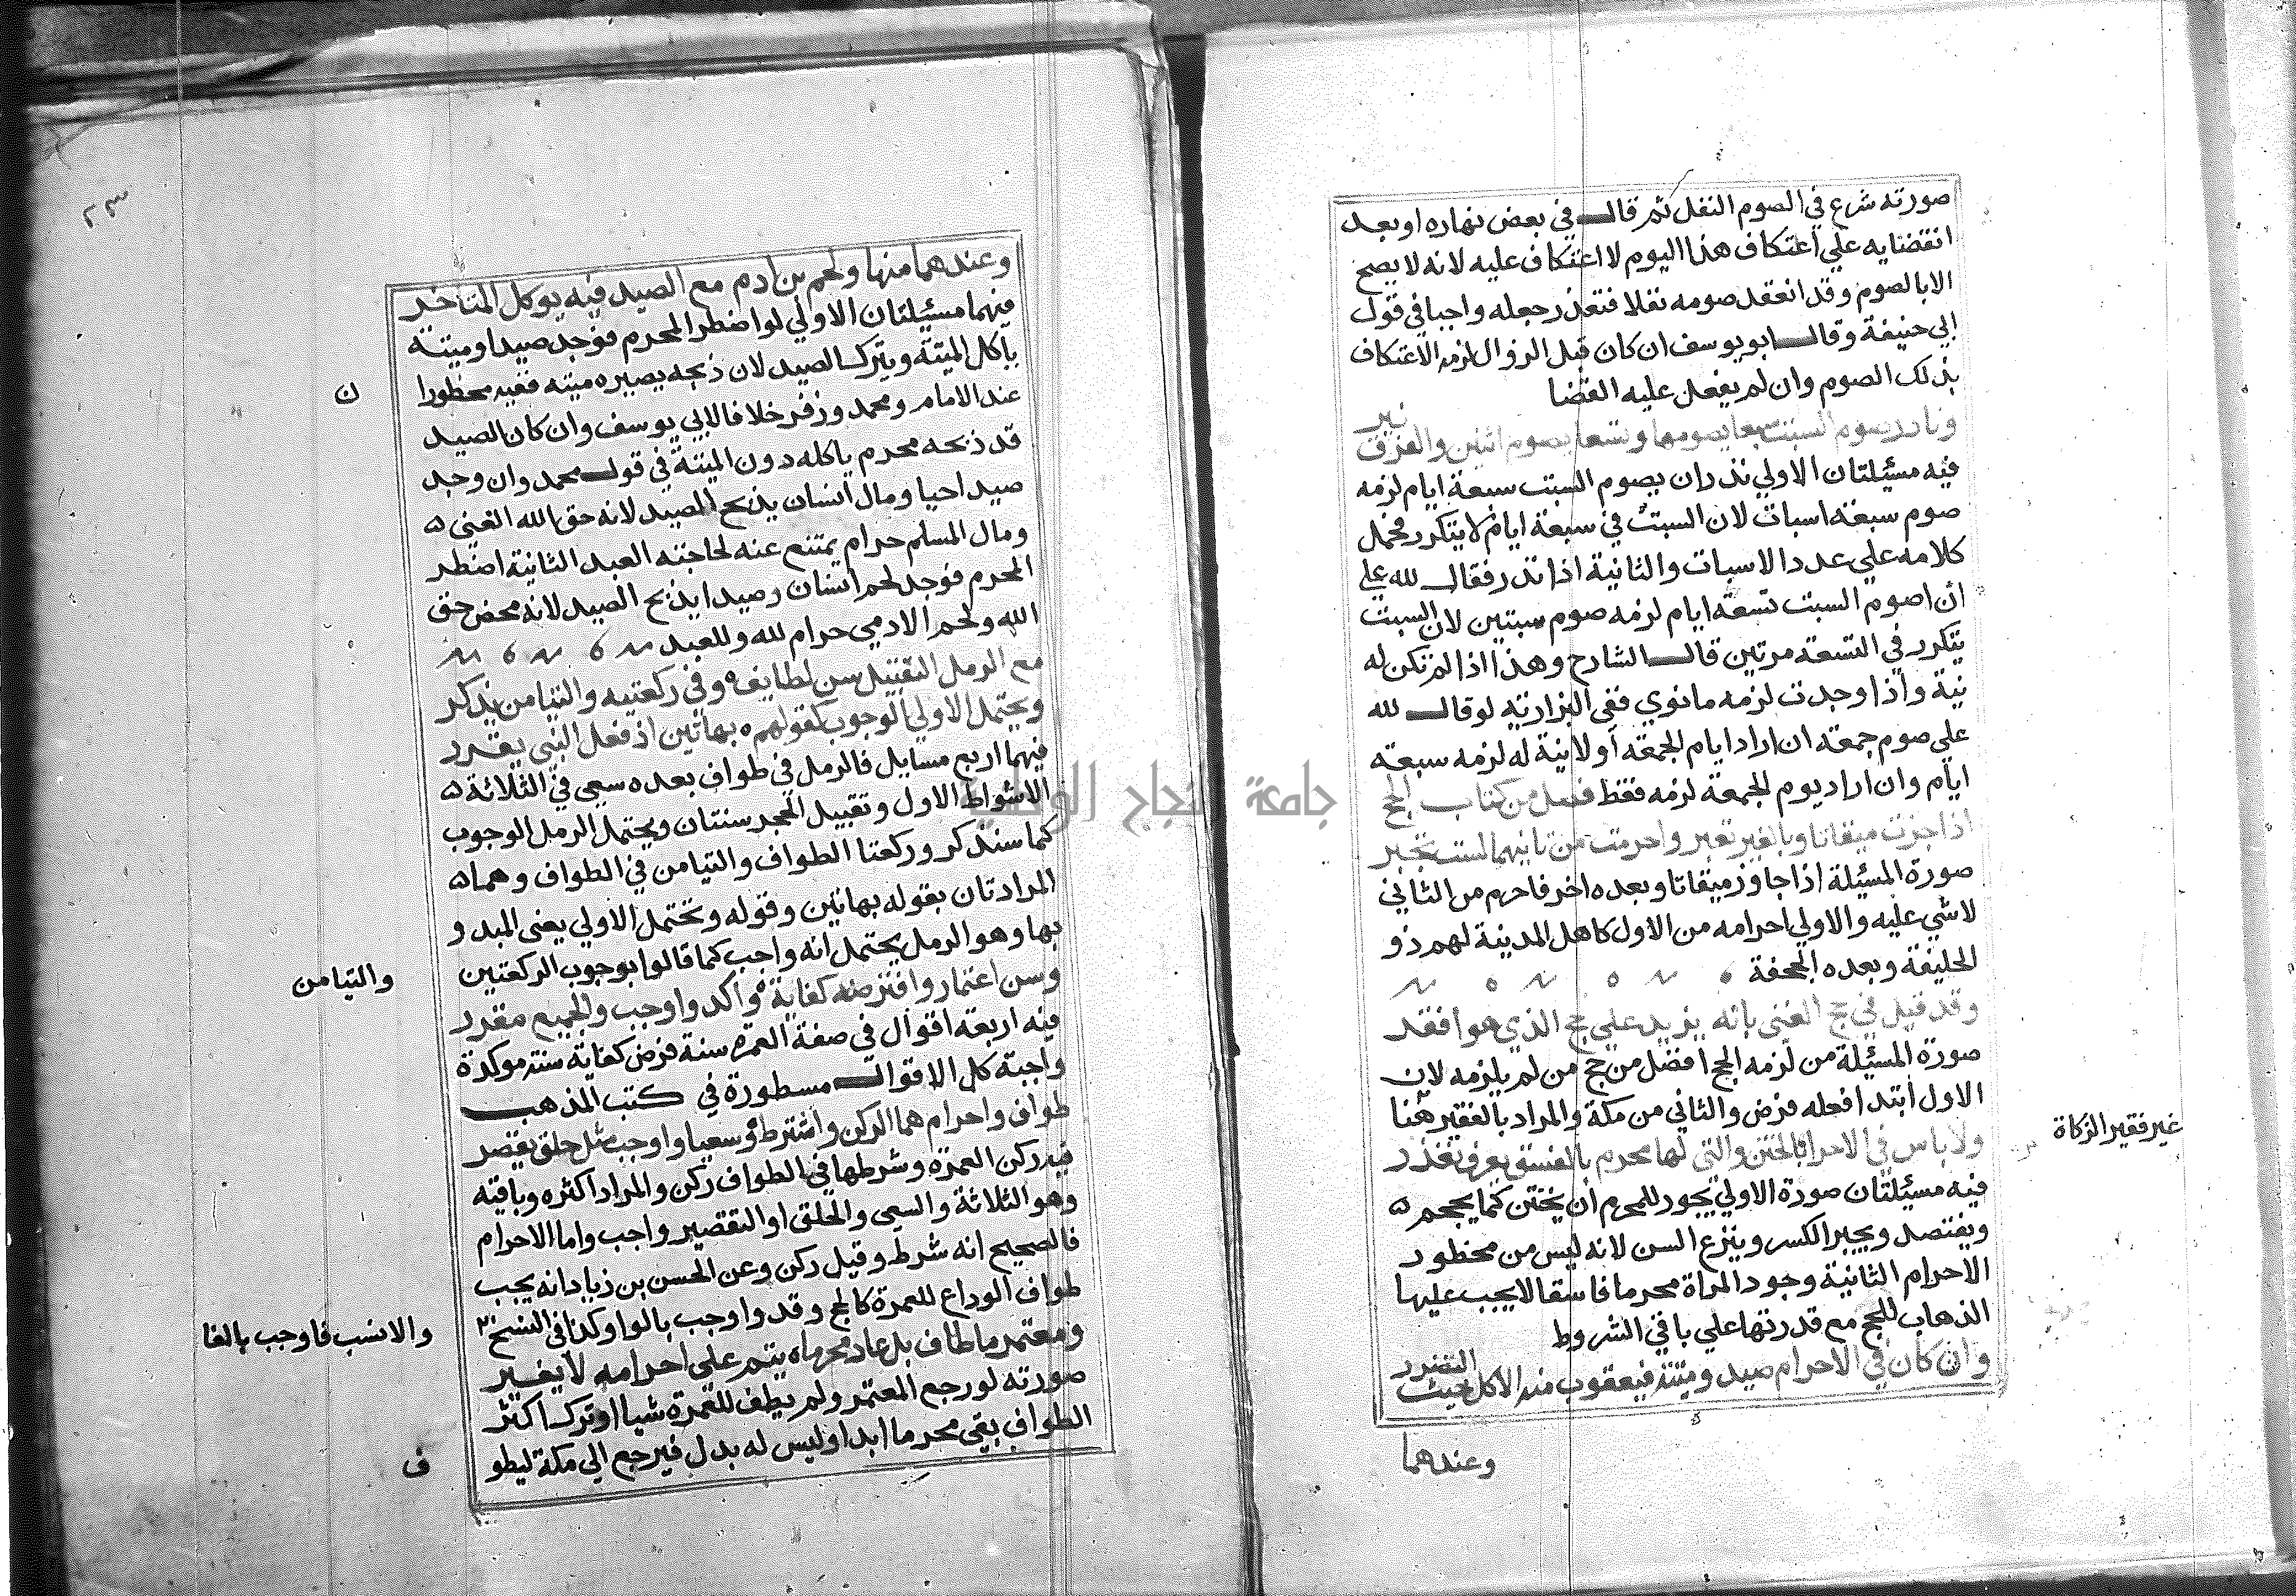 صورته شرع في الصوم النفل ثم قال في بعض نهاره او بعد
انقضايه علي اعتكاف هذا اليوم لا اعتكاف عليه لانه لا يصح
الا بالصوم وقد انعقد صومه نفلا فتعذر جعله واجبا في قول
ابي حنيفة وقال ابو يوسف ان كان قبل الزوال لزمه الاعتكاف
بذلك الصوم وان لم يفعل عليه القضا
وناذر صوم السبت سبعا يصومها وتسعا يصوم اثنين والفرق نير
فيه مسئيلتان الاولي نذر ان يصوم السبت سبعة ايام لزمه
صوم سبعة اسبات لان السبت في سبعة ايام لا يتكرر فحمل
كلامه علي عدد الاسبات والثانية اذا نذر فقال لله علي
أن اصوم السبت تسعة ايام لزمه صوم سبتين لان السبت
يتكرر في التسعة مرتين قال الشارح وهذا اذا لم تكن له
نية واذا وجدت لزمه ما نوي ففي البزازية لو قال لله
علي صوم جمعة ان اراد ايام الجمعة او لا نية له لزمه سبعة
ايام وان اراد يوم الجمعة لزمه فقط فصل من كتاب الحج
اذا جزت ميقاتا وبالغير تعبر واحرمت من ثانيهما لست تجبر
صورة المسئيلة اذا جاوز ميقاتا وبعده اخر فاحرم من الثاني
لا شي عليه والاولي احرامه من الاول كاهل المدينة لهم ذو
الحليفة وبعده الجحفة
وقد قيل في حج الغني بانه يزيد علي حج الذي هو افقد
صورة المسئيلة من لزمه الحج افضل من حج من لم يلزمه لان
الاول ابتدا فعله فرض والثاني من مكة والمراد بالفقير هنا
غير فقير الزكاة
ولا باس في الاحرام بالختن والتي لها محرم بالفسق يعرف تعذر
فيه مسئيلتان صورة الاولي يجوز للمحرم أن يختتن كما يحجم ٥
ويفتصد ويجبر الكسر وينزع السن لانه ليس من محظور
الاحرام الثانية وجود المراة محرما فاسقا لا يجب عليها
الذهاب للحج مع قدرتها علي باقي الشروط
وان كان في الاحرام صيد وميتة فيعقوب منه الاكل حيث التضرر
وعندهما
وعندهما منها ولحم بن ادم مع الصيد فيه يوكل المتاخر
فيهما مسئيلتان الاولي لو اضطر المحرم فوجد صيدا وميتة
ياكل الميتة ويترك الصيد لان ذبحه يصيره ميته ففيه محظورا
ن
عند الامام ومحمد وزفر خلافا لابي يوسف وان كان الصيد
قد ذبحه محرم ياكله دون الميتة في قول محمد وان وجد
صيدا حيا ومال انسان يذبح الصيد لانه حق الله الغني ٥
ومال المسلم حرام يمتنع عنه لحاجته العبد الثانية اضطر
المحرم فوجد لحم انسان وصيدا يذبح الصيد لانه محض حق
الله ولحم الادمي حرام لله وللعبد
مع الرمل التقبيل سن لطايف وفي ركعتيه والتيامن يذكر
ويحتمل الاولي الوجوب كقولهم بهاتين اذ فعل النبي يقرر
فيهما اربع مسايل فالرمل في طواف بعده سعي في الثلاثة ٥
الاشواط الاول وتقبيل الحجر سنتان ويحتمل الرمل الوجوب
كما سنذكر وركعتا الطواف والتيامن في الطواف وهما ٥
المرادتان بقوله بهاتين وقوله وتحتمل الاولي يعني المبدو
بها وهو الرمل يحتمل انه واجب كما قالوا بوجوب الركعتين
والتيامن
وسن اعتمار وافترضه كفاية وأكد واوجب والجميع مقرر
فيه اربعة اقوال في صفة العمرة سنة فرض كفاية سنة موكدة
واجبة كل الاقوال مسطورة في كتب المذهب
طواف واحرام هما الركن واشترط وسعيا واوجب مثل حلق يقصر
فيه ركن العمرة وشرطها في الطواف ركن والمراد اكثره وباقيه
وهو الثلاثة والسعي والحلق او التقصير واجب واما الاحرام
فالصحيح انه شرط وقيل ركن وعن الحسن بن زياد انه يجب
طواف الوداع للعمرة كالحج وقد واوجب بالواو كذا في النسخ
والانسب فاوجب بالفا
ومعتمر ما طاف بل عاد محرما يتم علي احرامه لا يغير
صورته لو رجع المعتمر ولم يطف للعمرة شيا او ترك اكثر
الطواف بقي محرما ابدا وليس له بدل فيرجع الي مكة ليطو
ف
جامعة النجاح الوطنية